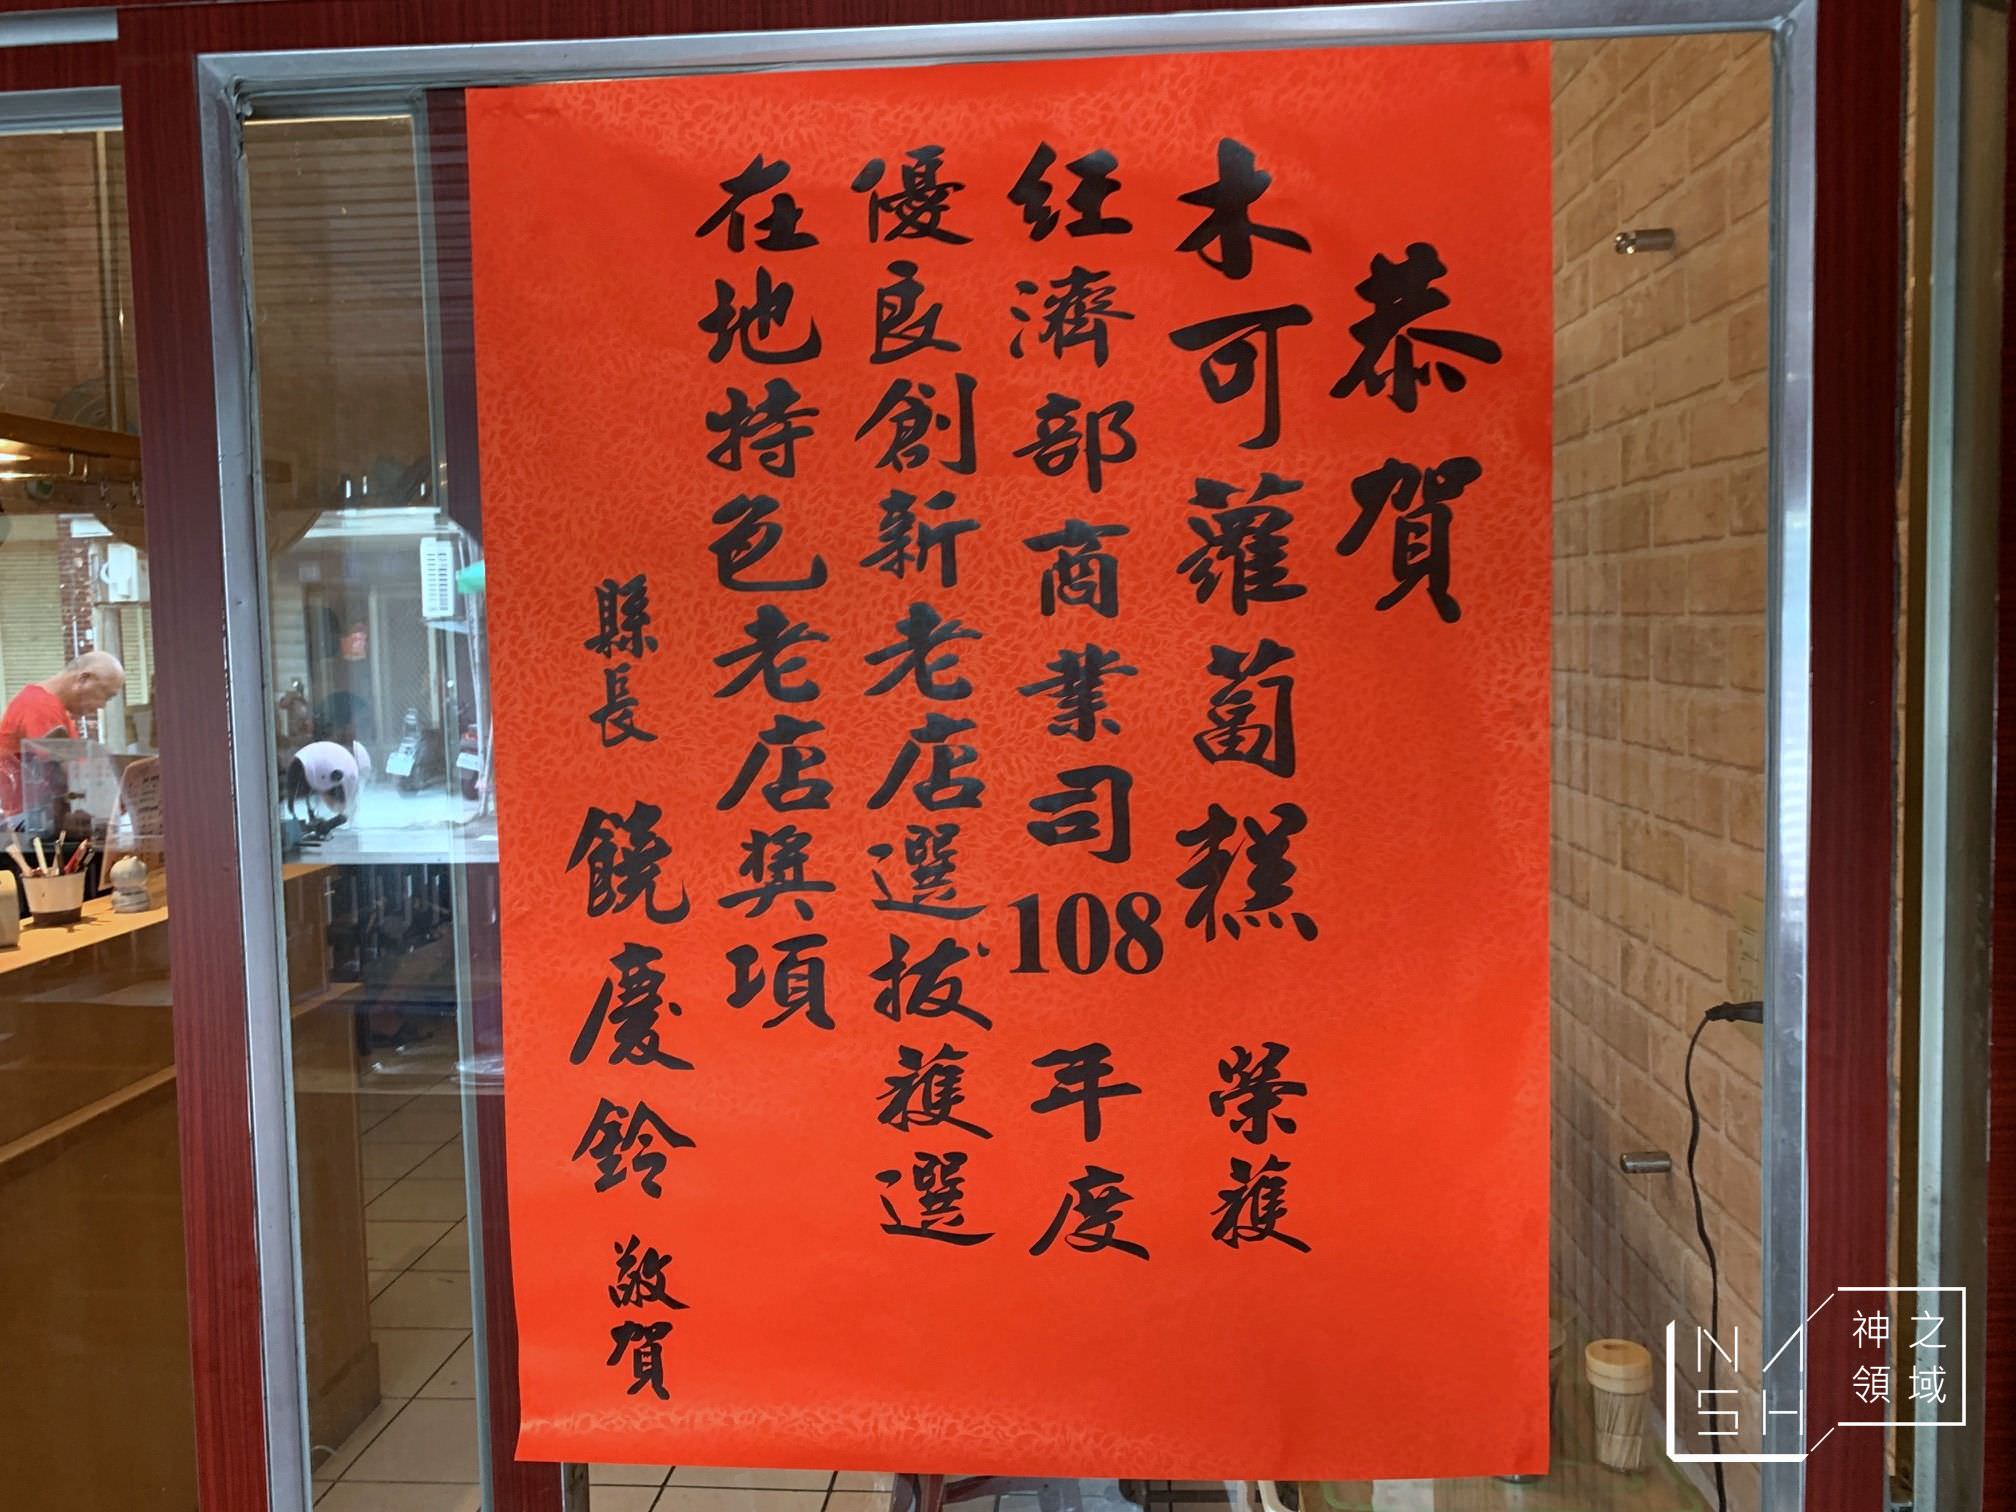 恭賀
木可蘿蔔糕 榮獲
經濟部商業司108年度
優良創新老店選拔獲選
在地特色老店獎項
縣長 饒慶鈴 敬賀
NASH
神之領域